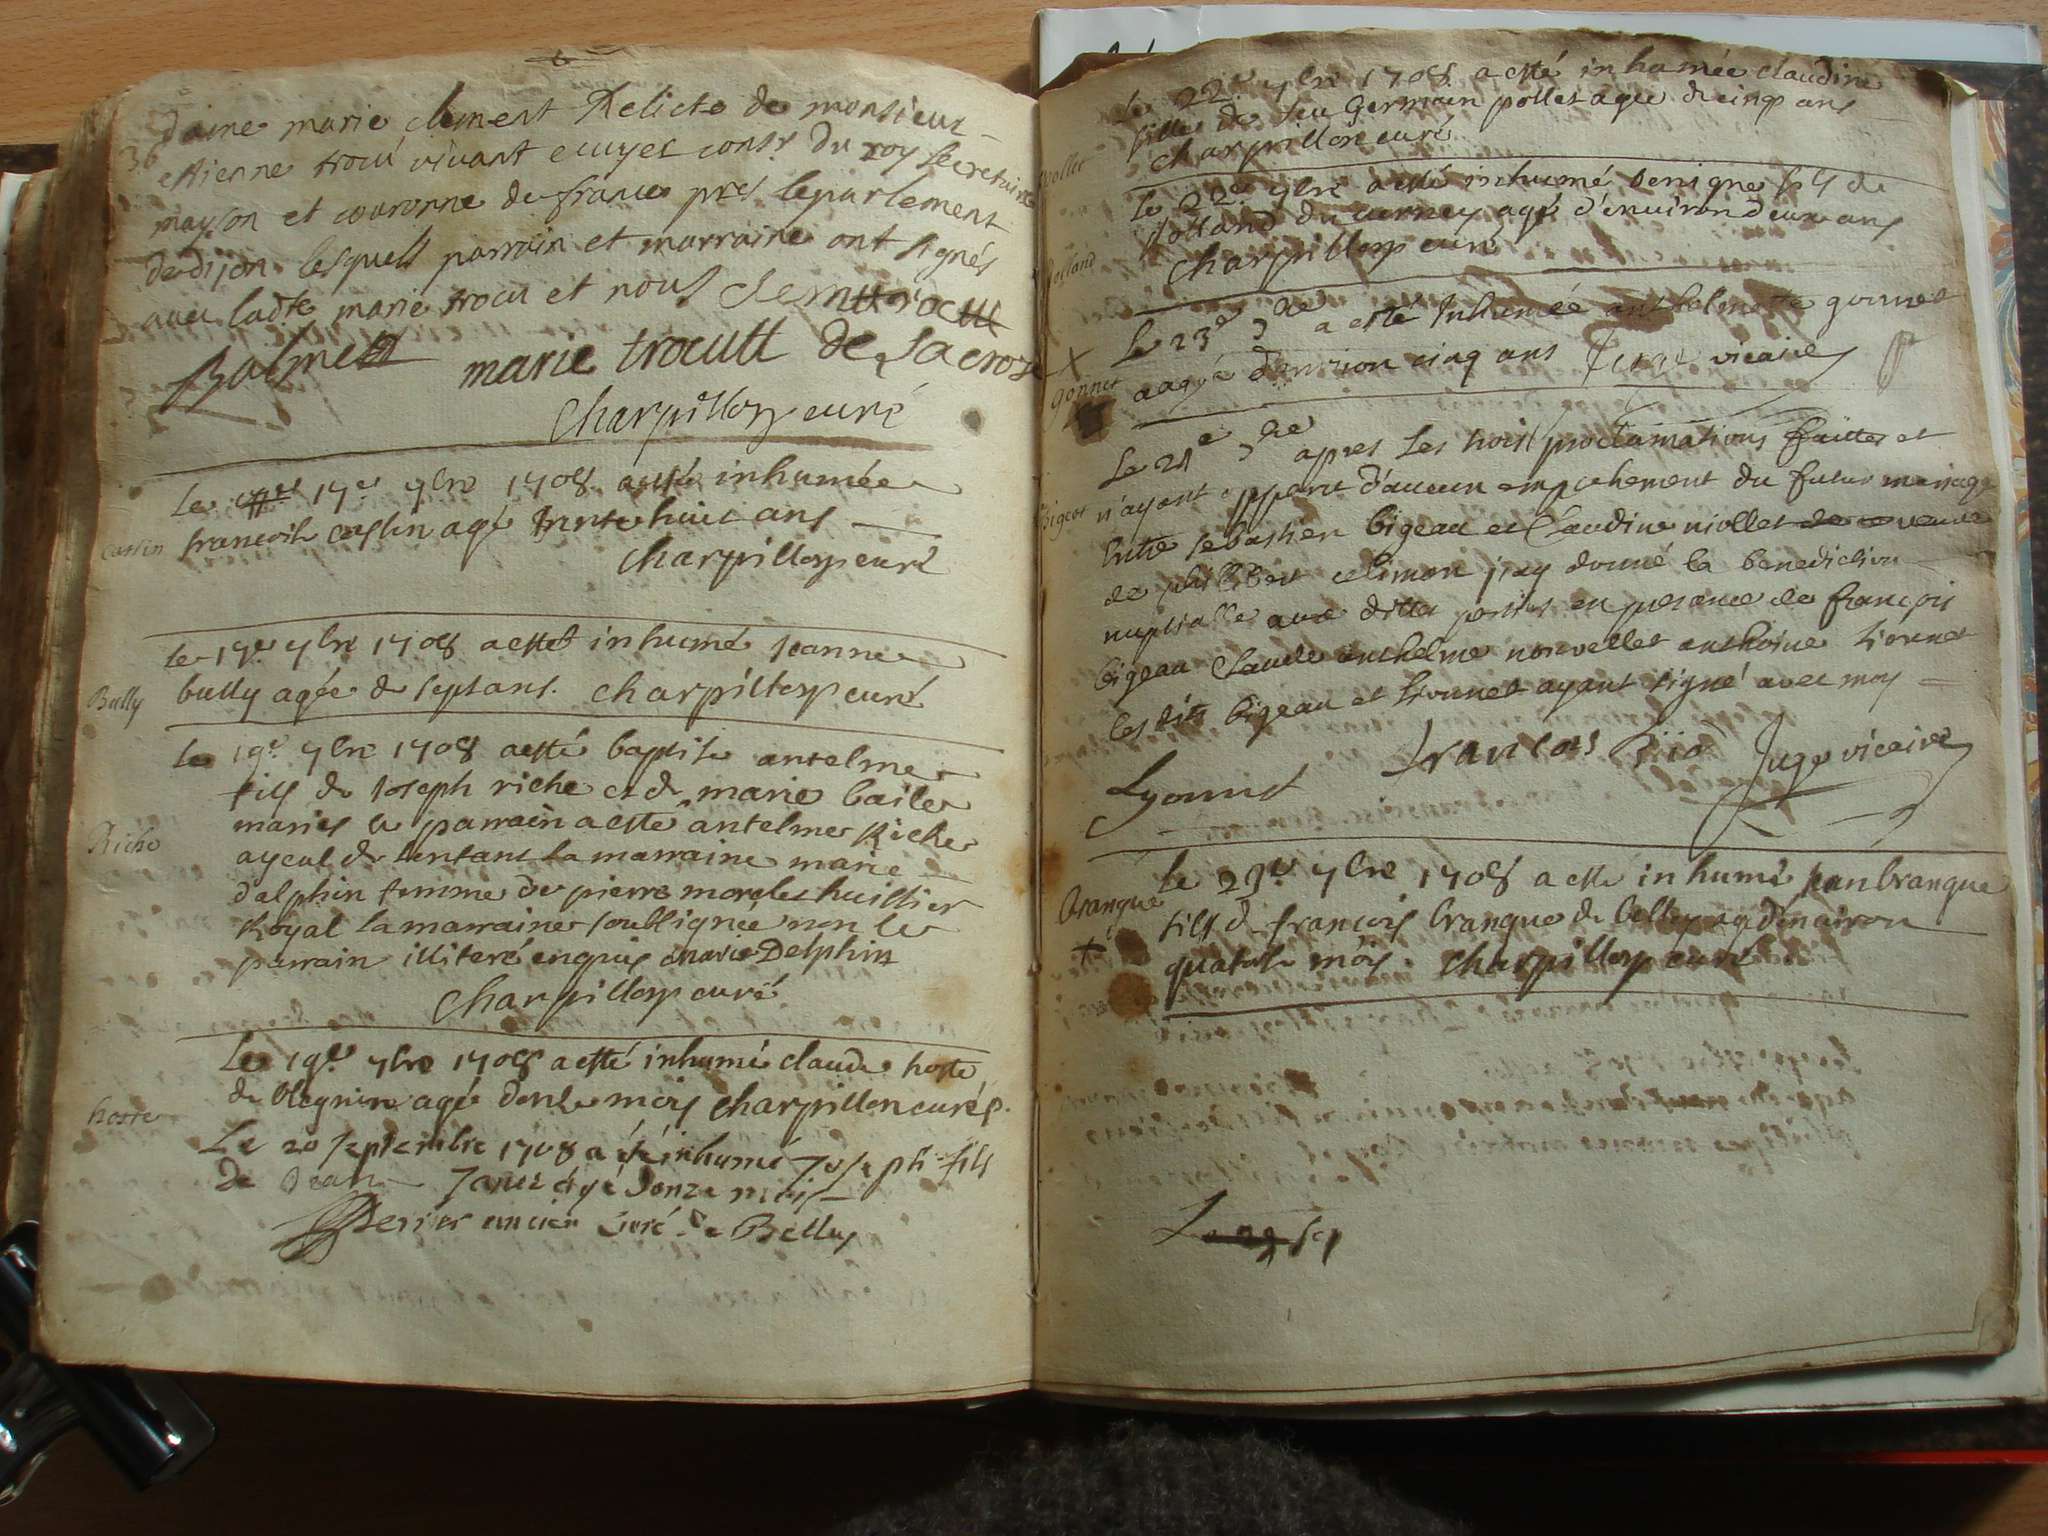 dame marie clement Relicte de monsieur
estienne trocu vivant ecuyer consr du roy secretaire
mayson et couronne de france pres le parlement
de dijon lesquels parrain et marraine ont signés
avec ladte marie trocu et nous
Balme marie trocutt de La croze
Charpillon curé
Le 17e 7bre 1708 a esté inhumée
Castin
francois castin agé trente huict ans
Charpillon curé
Le 19e 7bre 1708 a esté inhumé Jeanne
Bully
bully agée de sept ans. Charpillon curé
Le 19e 7bre 1708 a esté baptise antelme
fils de Joseph riche et de marie bailet
mariés le parrain a esté antelme Riche
Riche
ayeul de lenfant la marraine marie
dalphin femme de pierre morelet huissier
Royal la marraine soubsignée non le
parrain illiteré enquis marie Delphin
Charpillon curé
Le 19e 7bre 1708 a esté inhumé claude hoste
hoste
de agé donze mois Charpillon curé
Le 20 septembre 1708 a été inhumé Joseph fils
de Jean Janin agé donze mois
Perrier ancien Curé de Belley
Le 22e 7bre 1708 a esté inhumée claudine
fille de feu Germain pollet agee de cinq ans
pollet
Charpillon curé
Le 22e 7bre a esté inhumé benigne fils de
Rolland du verney agé d'environ deux ans
Rolland
Charpillon curé
Le 23e 7bre a esté Inhumée anthelmette gonnet
gonnet
aagée d'environ cinq ans Juge vicaire
Le 24e 7bre apres les trois proclamations faittes et
Bigeot
n'ayant apparu d'aucun empechement du futur mariage
Entre sebastien bigeau et Claudine niollet de ce veuve
de philibert celimon j'ay donné la benediction
nuptialle aux dittes parties en presence de françois
bigeau Claude anthelme norvellet anthoine Lionnet
les dits bigeau et Lionnet ayant signé avec moy
Lyonnet francois Juge vicaire
Le 23e 7bre 1708 a esté inhumé jean branque
branque
fils de francois branque de belley agé d'environ
quatorse mois. Charpillon curé
Le 23 sep